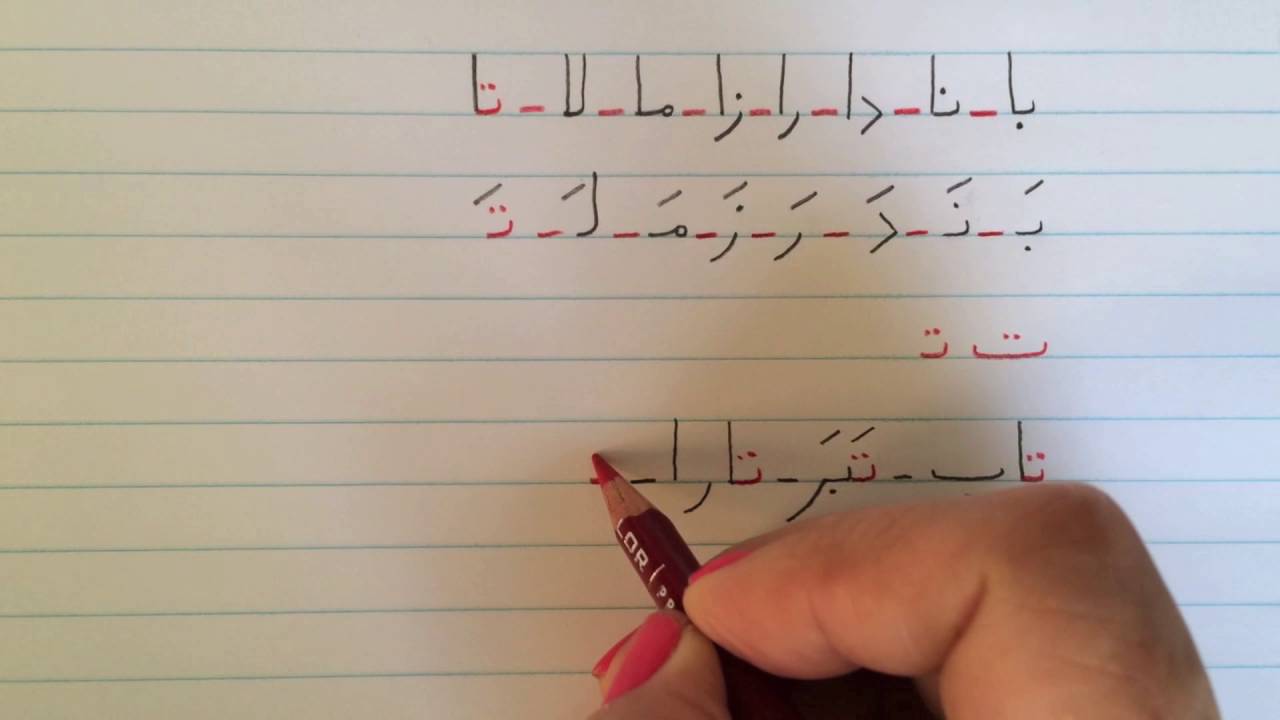 با - نا - دا - را - زا - ما - لا - تا
بَ - نَ - دَ - رَ - زَ - مَ - لَ - تَ
ت تـ
تاب - تَبَر - تارا -